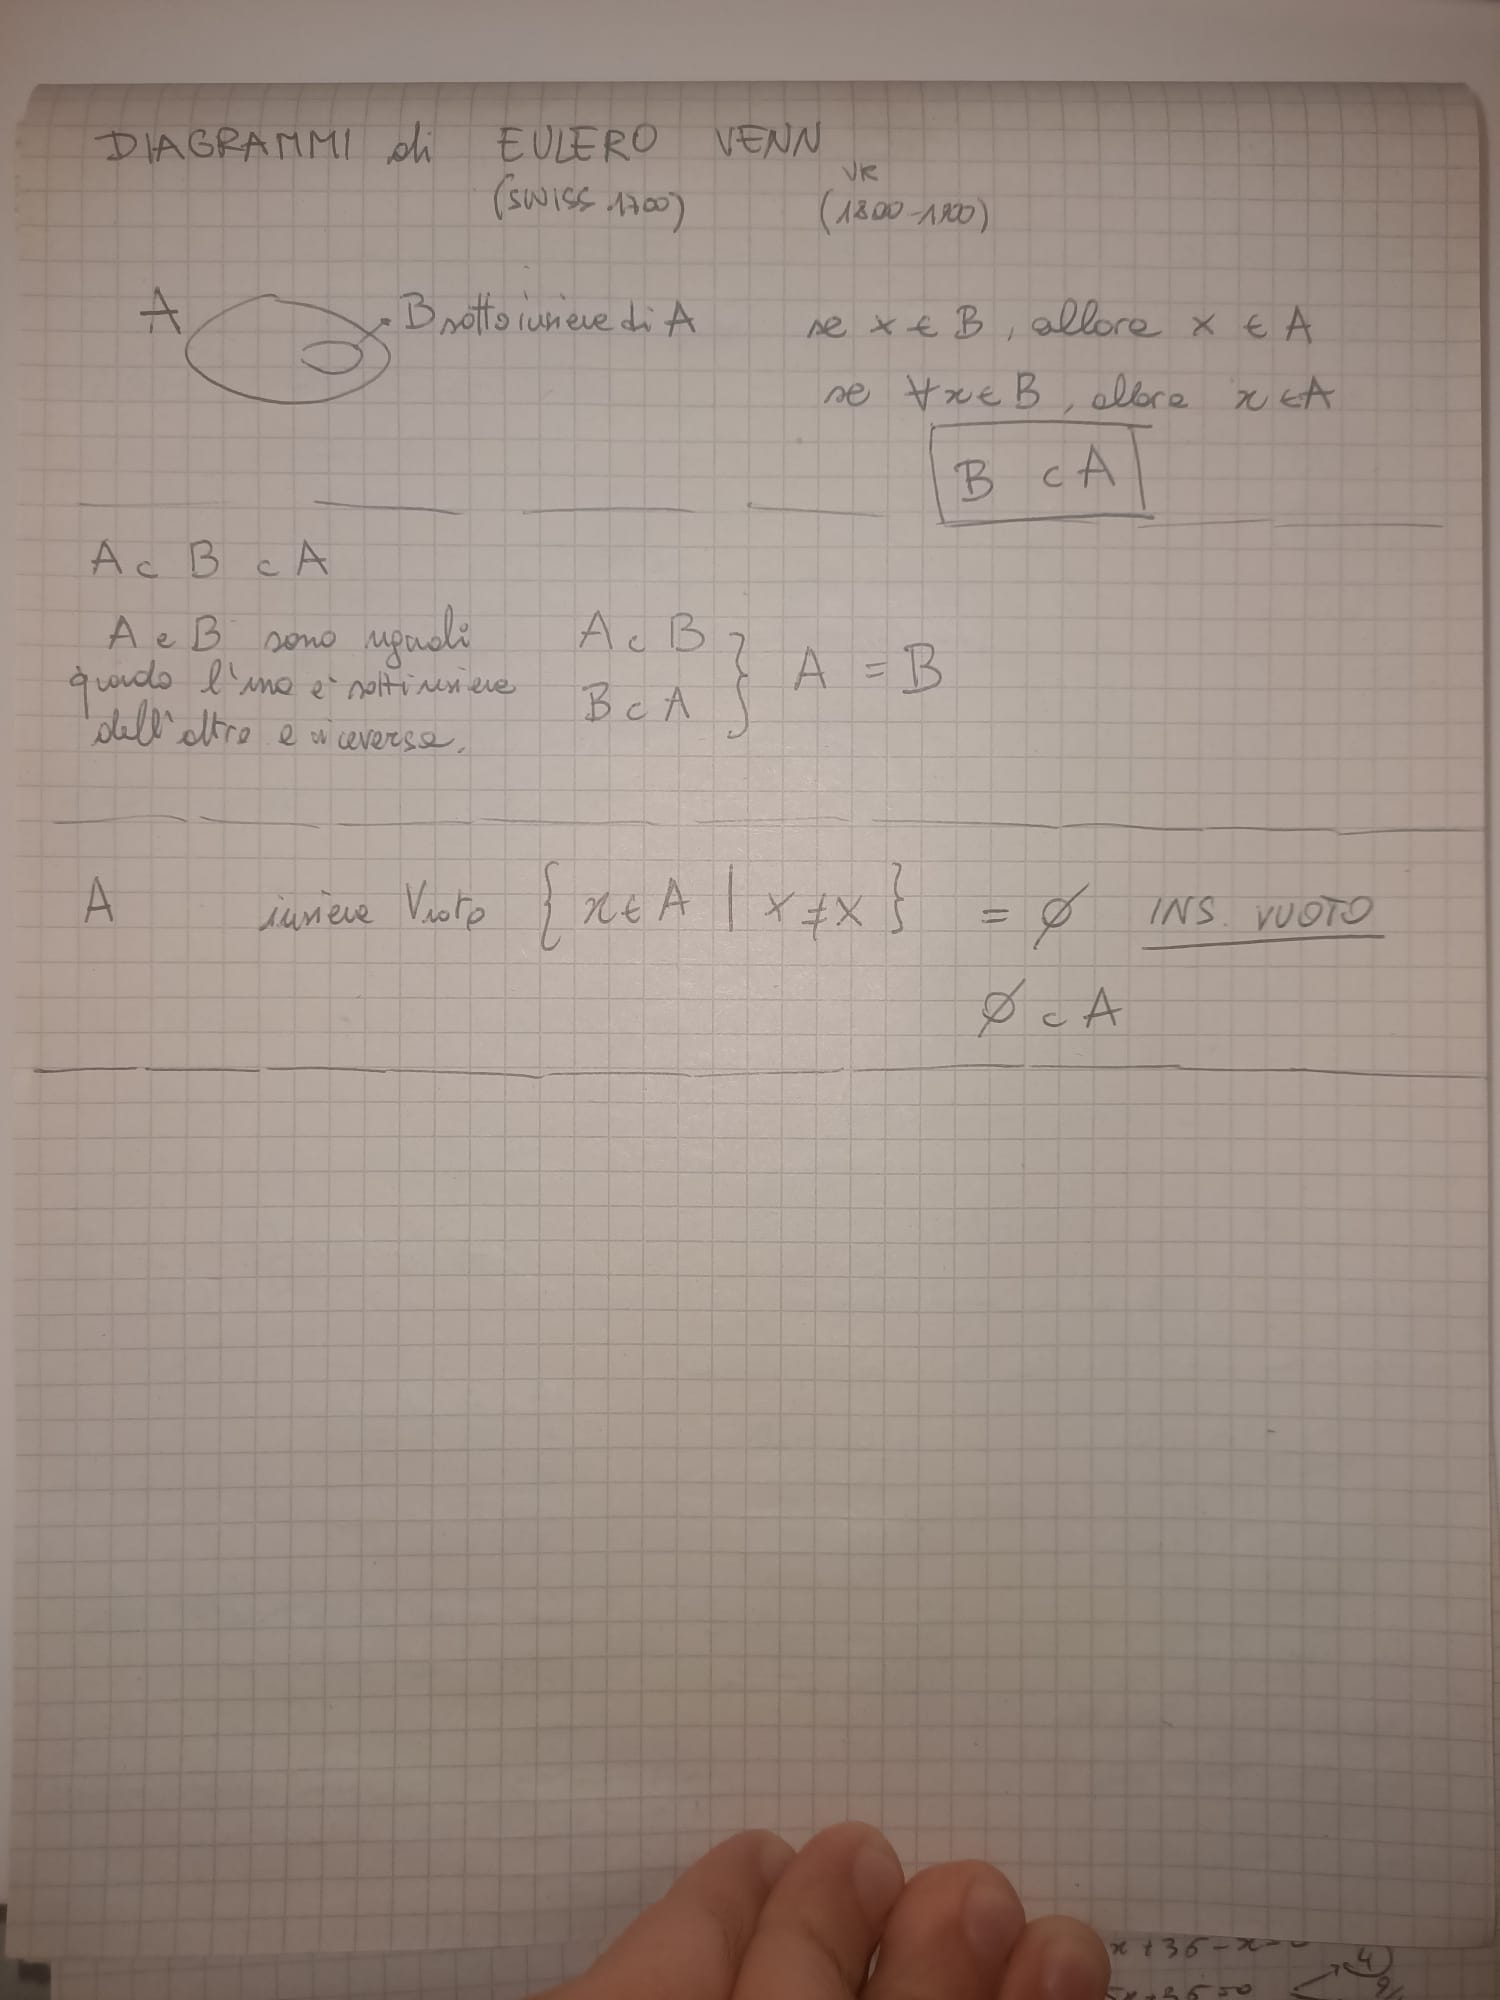 DIAGRAMMI di EULERO VENN
(SWISS 1700) UK (1800-1900)
A B sottoinsieme di A se x ∈ B, allora x ∈ A
se ∀x ∈ B, allora x ∈ A
B ⊂ A
A ⊂ B ⊂ A
A e B sono uguali
quando l'uno è sottoinsieme
dell'altro e viceversa.
A ⊂ B
B ⊂ A } A = B
A insieme Vuoto { x ∈ A | x ≠ x } = ∅ INS. VUOTO
∅ ⊂ A
4